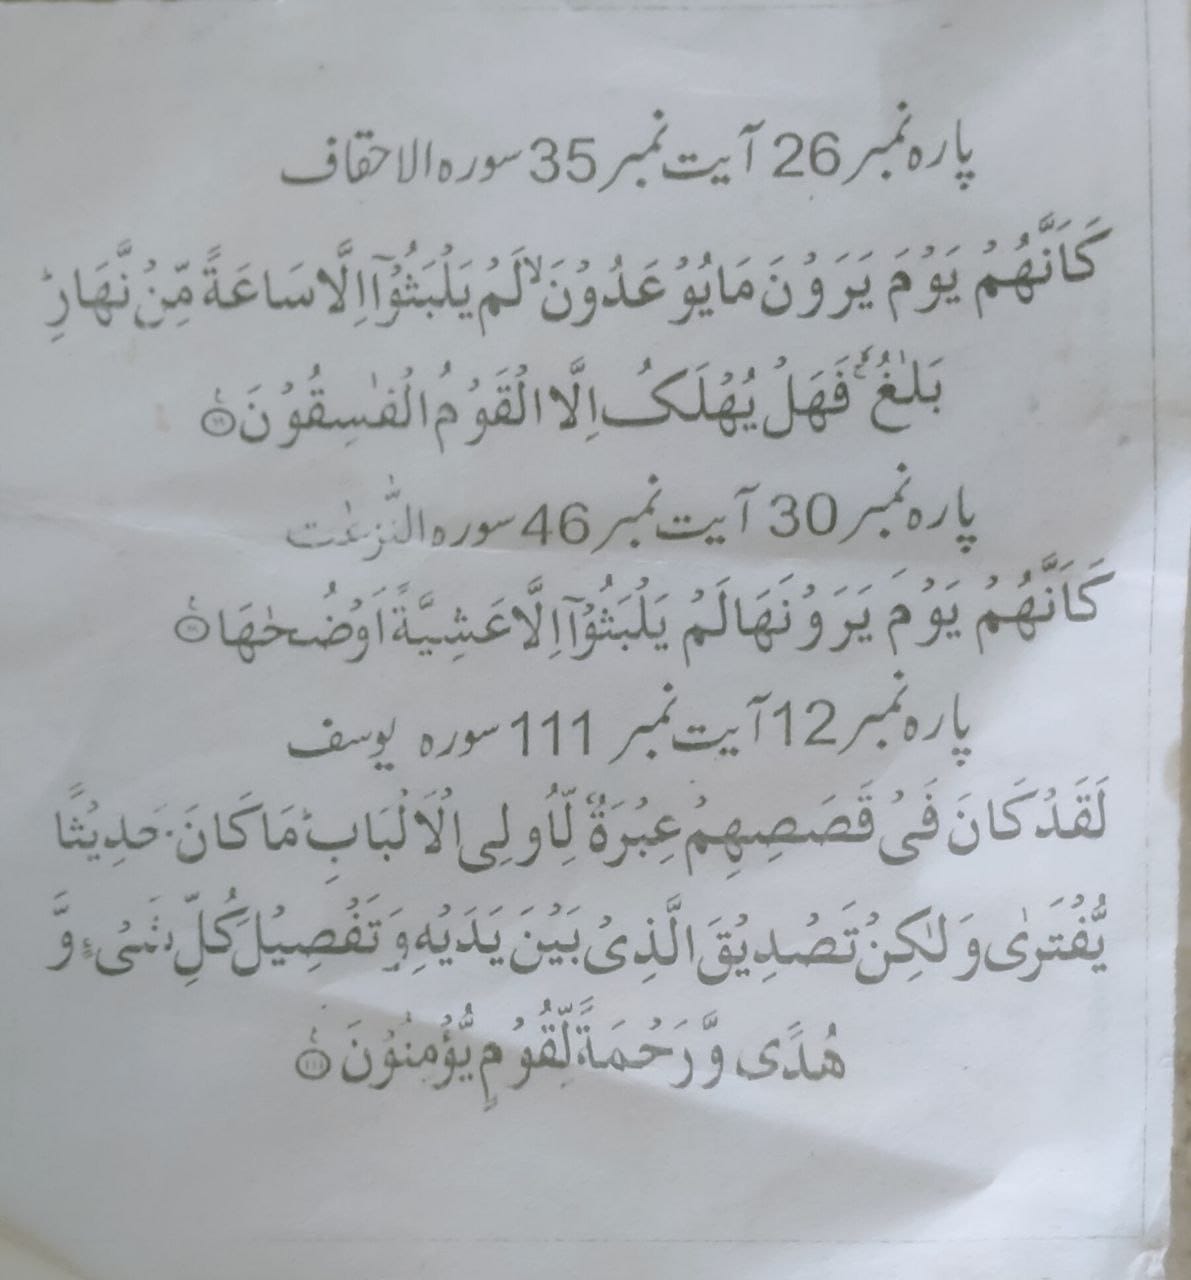 پارہ نمبر 26 آیت نمبر 35 سورہ الاحقاف
كَاَنَّهُمْ يَوْمَ يَرَوْنَ مَا يُوْعَدُوْنَ ۙ لَمْ يَلْبَثُوْٓا اِلَّا سَاعَةً مِّنْ نَّهَارٍ ؕ
بَلٰغٌ ۚ فَهَلْ يُهْلَكُ اِلَّا الْقَوْمُ الْفٰسِقُوْنَ
پارہ نمبر 30 آیت نمبر 46 سورہ النّٰزعٰت
كَاَنَّهُمْ يَوْمَ يَرَوْنَهَا لَمْ يَلْبَثُوْٓا اِلَّا عَشِيَّةً اَوْ ضُحٰهَا
پارہ نمبر 12 آیت نمبر 111 سورہ یوسف
لَقَدْ كَانَ فَىْ قَصَصِهِمْ عِبْرَةٌ لِّاُولِى الْاَلْبَابِ ؕ مَا كَانَ حَدِيْثًا
يُّفْتَرٰى وَلٰكِنْ تَصْدِيْقَ الَّذِىْ بَيْنَ يَدَيْهِ وَتَفْصِيْلَ كُلِّ شَىْءٍ وَّ
هُدًى وَّرَحْمَةً لِّقَوْمٍ يُّؤْمِنُوْنَ ۝۱۱۱